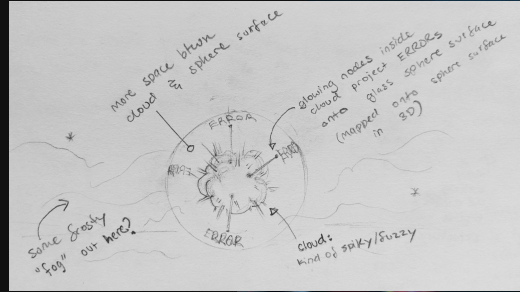 More space btwn
cloud & sphere surface
glowing nodes inside
cloud project ERRORS
onto glass sphere surface
(mapped onto sphere surface
in 3D)
ERROR
ERROR
ERROR
ERROR
Some frosty
"fog" out here?
cloud:
kind of spiky/fuzzy